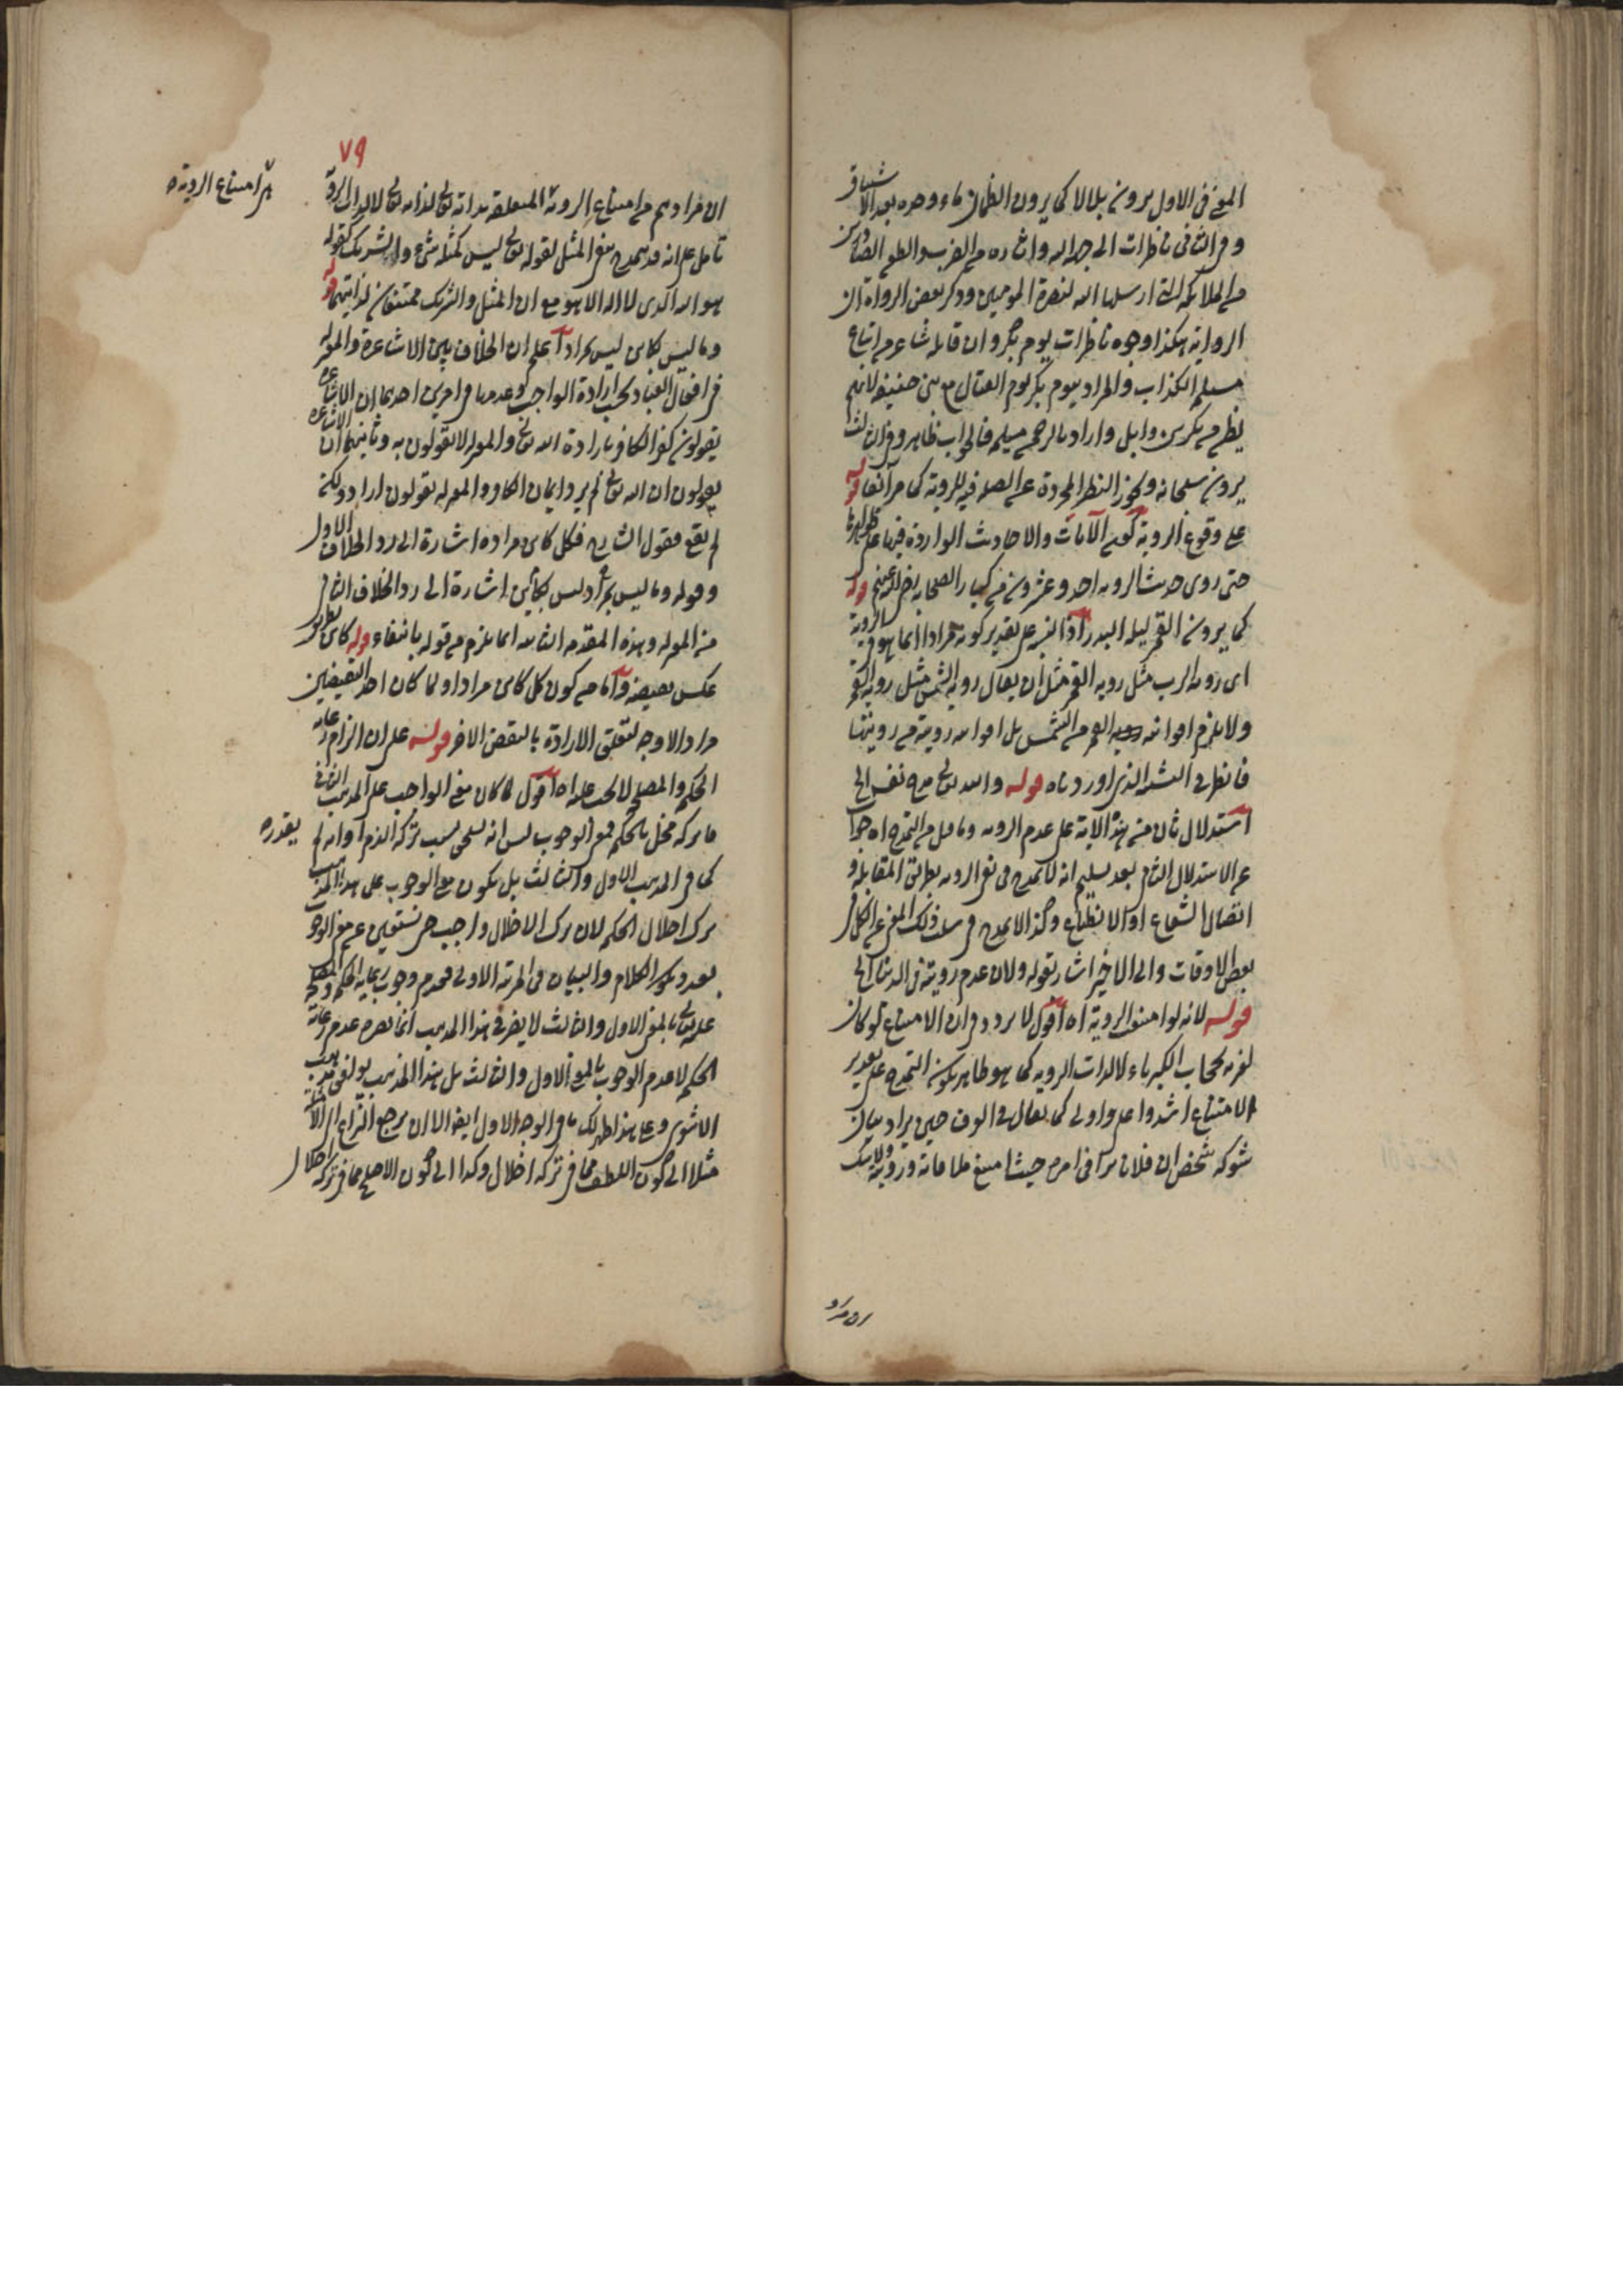 المعنى فى الاول يرون بلالا كما يرون الظمان ماء وحده بعد الاشتياق
وفى الثانى ناظرات الى جهة الله واثاره من الضرب والطعن الصادرين
من الملائكة التى ارسلها الله لنصرة المؤمنين وذكر بعض الرواة ان
الرواية هكذا وجوه ناظرات يوم بكر وان قائله شاعر من اتباع
مسيلمة الكذاب والمراد بيوم بكر يوم القتال مع بنى حنيفة لانهم
بطن من بكر بن وايل واراد بالرحمن مسيلمة فالجواب ظاهر وفى الثالث
يرون سجاله وكون النظر المجردة عن الصلة فيه للرؤية كما مر آنفا قوله
على وقوع الرؤية كون الآيات والاحاديث الواردة فيها على ظواهرها
حتى روى حديث الرؤية احد وعشرون من كبار الصحابة رضى الله عنهم قوله
كما يرون القمر ليلة البدر اذ التشبيه على تقدير كونه مرادا انما هو فى الرؤية
اى رؤية الرب مثل رؤية القمر مثل ان يقال رؤية الشمس مثل رؤية القمر
ولا يلزم اضوائية القمر من الشمس بل اضوائية رؤيته من رؤيتها
فانظر فى السند الذى اوردناه قوله والله تعالى مدح نفسه الى
استدلال ثان من هذه الاية على عدم الرؤية وما قيل من التمدح اه جواب
عن الاستدلال الثانى بعد تسليم انه لا تمدح فى نفى الرؤية بطريق المقابلة و
اتصال الشعاع او الانطباع وكذا لا تمدح فى سلب ذلك المعنى عن الكل فى
بعض الاوقات والى الاخير اشار بقوله ولان عدم رؤيته فى الدنيا الى
قوله لانه لو امتنع الرؤية اه اقول لا يرد دفع ان الامتناع لو كان
لغيره كحجاب الكبرياء لا لذات الرؤية كما هو ظاهر يكون التمدح على تقدير
الامتناع اشد واعلى واولى كما يقال فى العرف حين يراد بيان
شوكة شخص ان فلانا مراقى امره حيث امتنع ملاقاته ورؤيته ولا شك
٧٩
ان مرادهم من امتناع الرؤية المتعلقة بذاته تعالى لذاته تعالى لا لذات الرؤية
تأمل على انه قد تمدح بنفى المثل لقوله تعالى ليس كمثله شىء والشريك كقوله
هو الله الذى لا اله الا هو مع ان المثل والشريك ممتنعان لذاتيهما قوله
وما ليس بكائن ليس بمراد اعلم ان الخلاف بين الاشاعرة والمعتزلة
فى افعال العباد بحسب ارادة الواجب وعدمها فى امرين احدهما ان الاشاعرة
يقولون كفر الكافر بارادة الله تعالى والمعتزلة لا يقولون به وثانيهما ان الاشاعرة
يقولون ان الله تعالى لم يرد ايمان الكافر والمعتزلة يقولون اراد ولكنه
لم يقع فقول الشارح فكل كائن مراده اشارة الى رد الخلاف الاول
وقوله وما ليس بمراد ليس بكائن اشارة الى رد الخلاف الثانى
من المعتزلة وهذه المقدمة الثانية انما يلزم من قوله بانتفاء قوله كائن بطريق
عكس نقيضه واما من كون كل كائن مرادا ولما كان احد النقيضين
مرادا لا وجه لتعلق الارادة بالنقيض الاخر قوله على ان الزام رعاية
الحكم والمصلحة لا يجب عليه اه اقول لما كان معنى الواجب على المذهب الثانى
ما تركه مخل بالحكمة فمعنى الوجوب ليس انه يستحق بسبب تركه الذم او انه لم
كما فى المذهب الاول والثالث بل يكون معنى الوجوب على هذا المذهب
ترك اخلال الحكمة لان ترك الاخلال واجب حتى نستعين عن معنى الوجوب
بعد ويكرر الكلام والبيان فى المرتبة الاولى فعدم وجوب رعاية الحكم والمصلحة
عليه تعالى بالمعنى الاول والثالث لا يضر فى هذا المذهب انما يضره عدم رعاية
الحكم لا عدم الوجوب بالمعنى الاول والثالث بل هذا المذهب يوافق مذهب
الاشعرى وعلى هذا ظهر لك ما فى الوجه الاول ايضا الا ان يرجع النزاع الى الامثلة
مثلا الى كون اللطف مما فى تركه اخلال وكذا الى كون الاصلح مما فى تركه اخلال
من امتناع الرؤية
يقدره
ان مراد